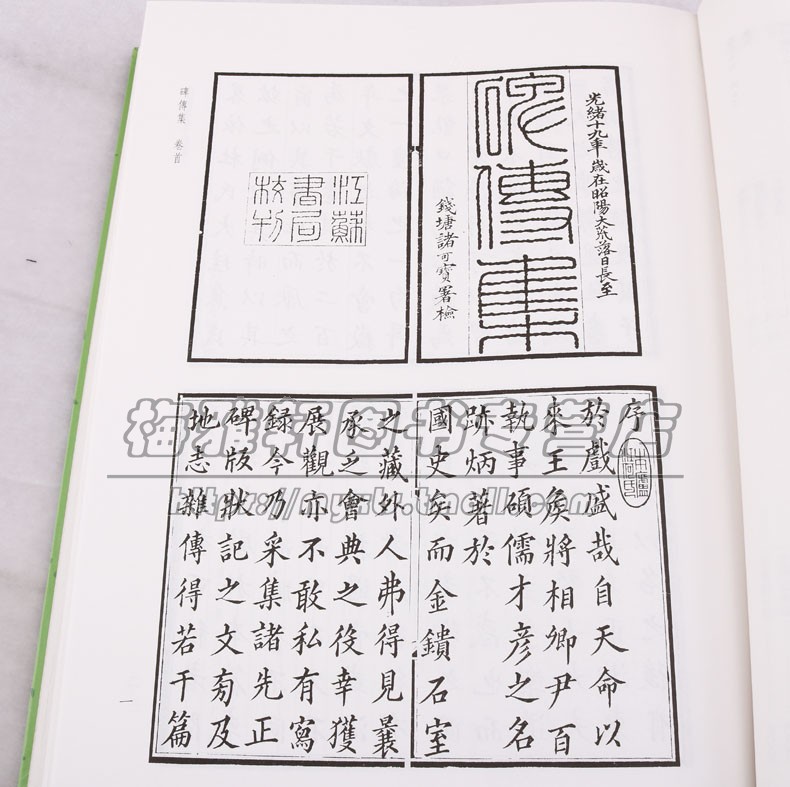 碑傳集 卷首
光緒十九年歲在昭陽大荒落日長至
碑傳集
錢塘諸可寶署檢
江蘇
書局
校刊
序
於戲盛哉自天命以
來王矦將相卿尹百
執事碩儒才彥之名
跡炳著於
國史矣而金鐀石室
之藏外人弗得見曩
承乏會典之役幸獲
展觀亦不敢私有寫
録今乃采集諸先正
碑版狀記之文旁及
地志雜傳得若干篇
一
梅雅轩图书专营店